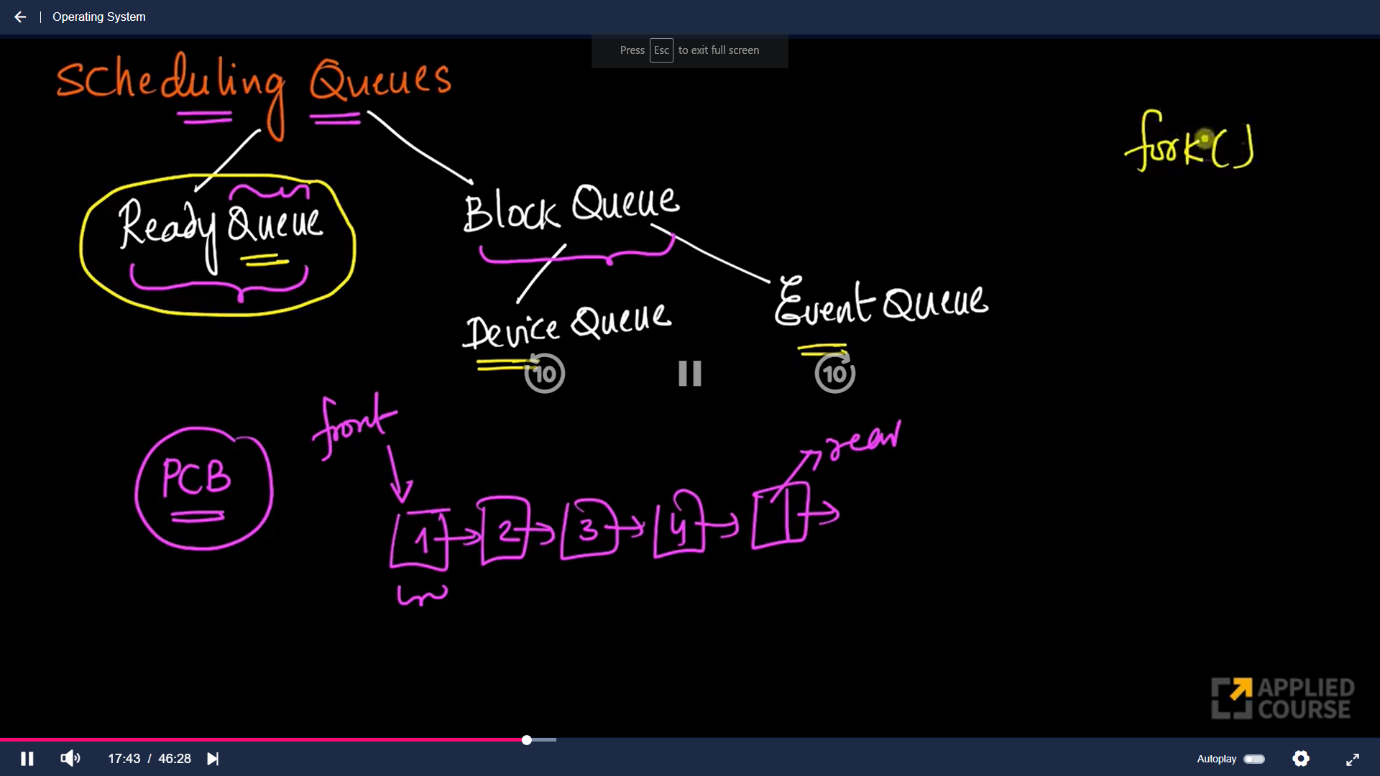 Operating System
Press Esc to exit full screen
Scheduling Queues
fork()
Ready Queue
Block Queue
Device Queue
Event Queue
10
10
front
rear
PCB
1 2 3 4
APPLIED
COURSE
17:43 / 46:28
Autoplay